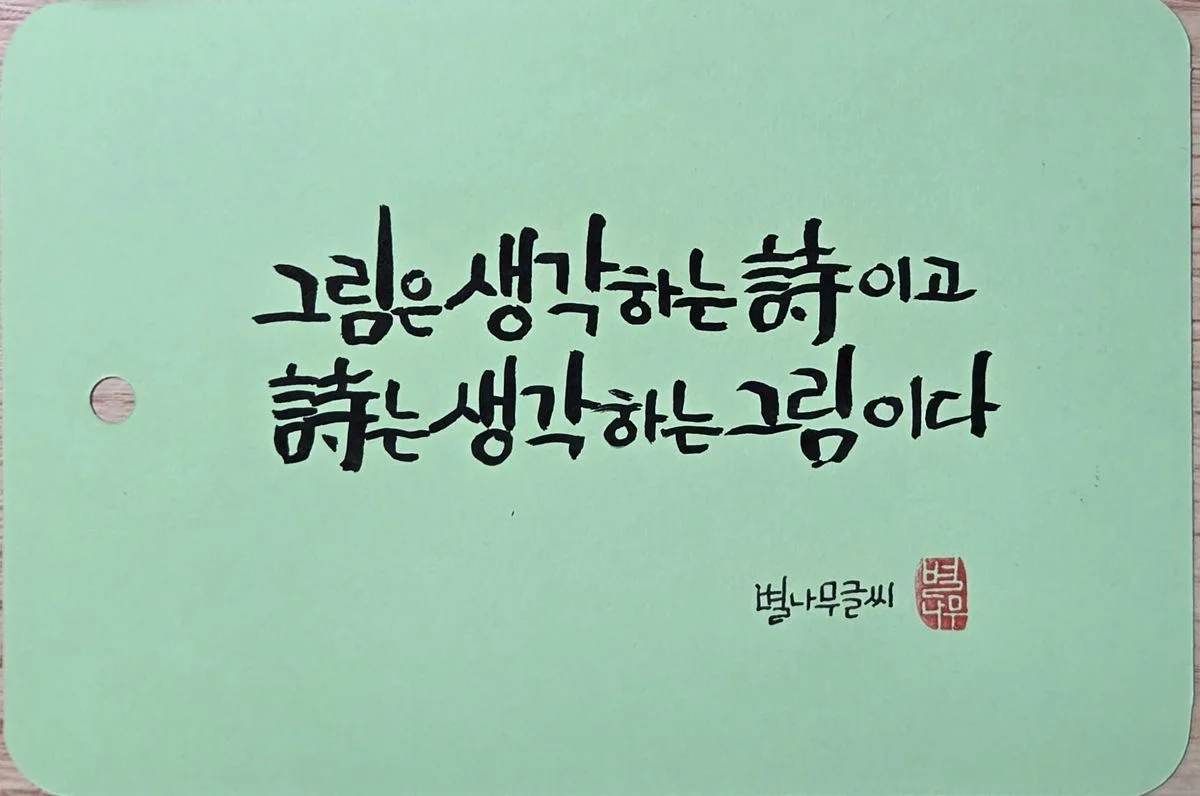 그림은 생각하는 詩이고
詩는 생각하는 그림이다
별나무글씨
별
나무